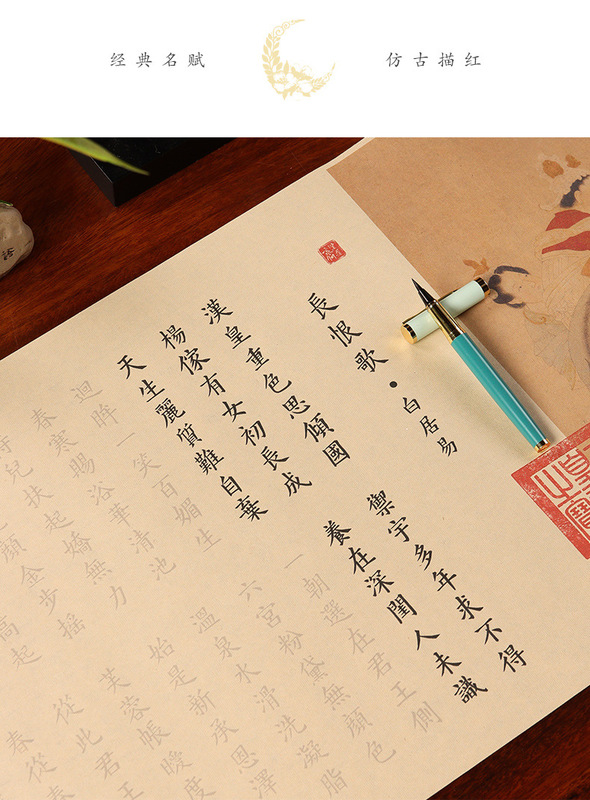 经典名赋
仿古描红
長恨歌•白居易
漢皇重色思傾國 禦宇多年求不得
楊傢有女初長成 養在深閨人未識
天生麗質難自棄 一朝選在君王側
迴眸一笑百媚生 六宮粉黛無顏色
春寒賜浴華清池 溫泉水滑洗凝脂
兒扶起嬌無力 始是新承恩澤
顏金步搖 芙蓉帳暖度
高起 從此君王
春從春